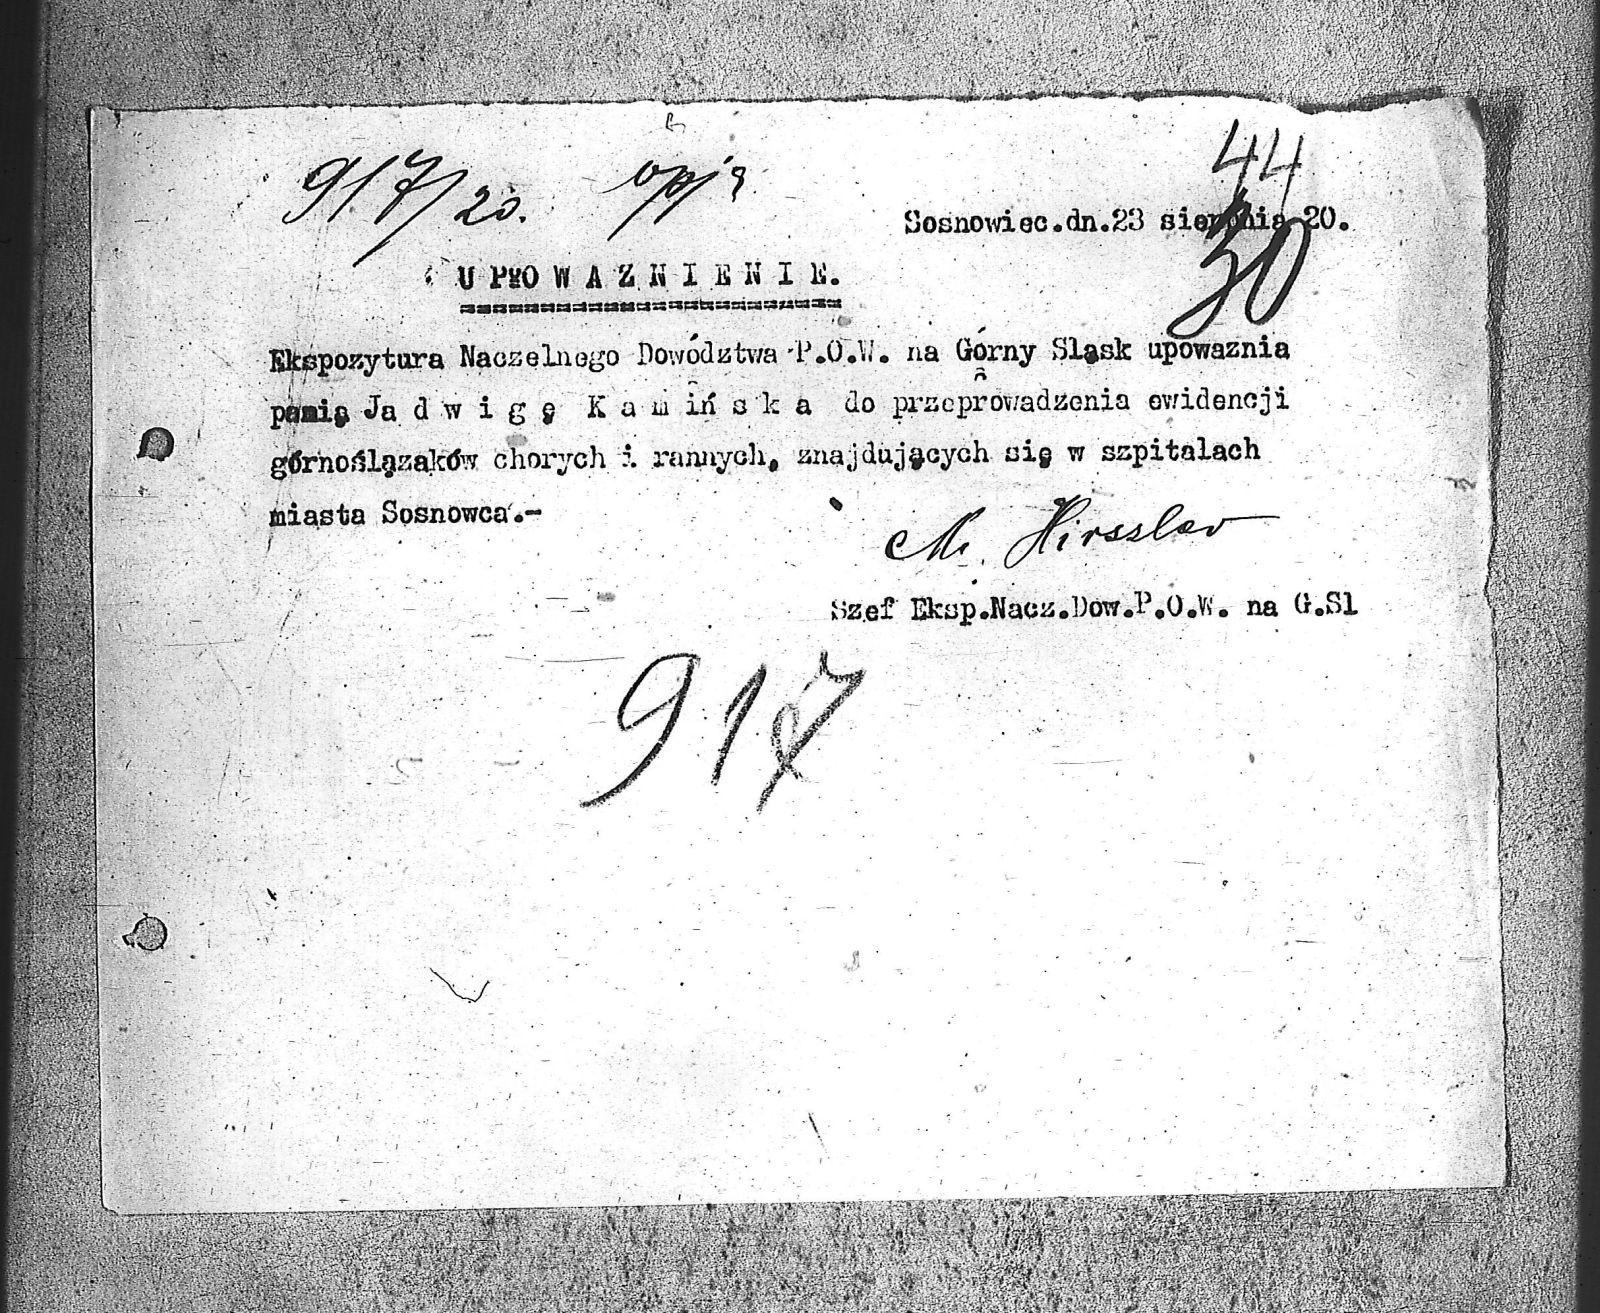 44
917/20.
Sosnowiec.dn.23 sierpnia 20.
30
U P O W A Z N I E N I E.
Ekspozytura Naczelnego Dowództwa P.O.W. na Górny Sląsk upowaznia
panią Ja d w i g ę K a m i ń s k a do przeprowadzenia ewidencji
górnoślązaków chorych i rannych, znajdujących się w szpitalach
miasta Sosnowca.-
M. Hirszler
Szef Eksp.Nacz.Dow.P.O.W. na G.Sl
917